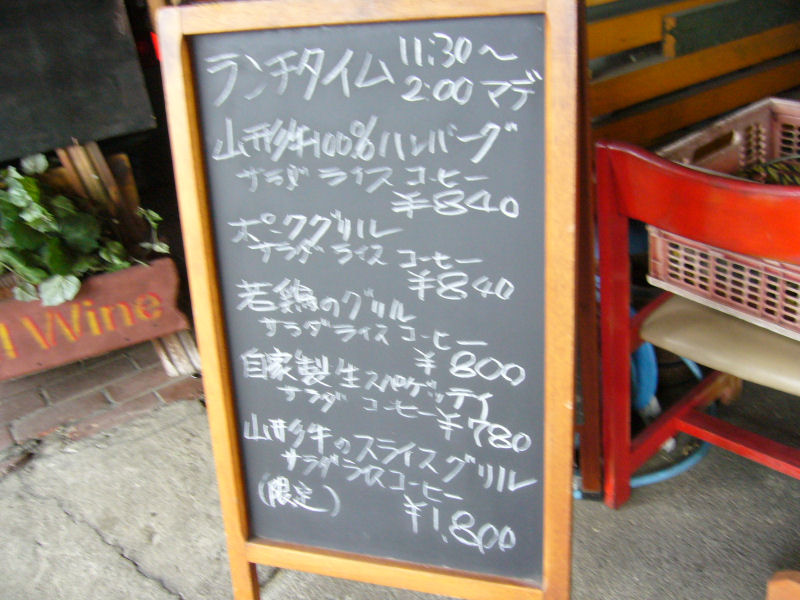 ランチタイム 11:30〜
2:00 マデ
山形牛100%ハンバーグ
サラダ ライス コーヒー
¥840
ポークグリル
サラダ ライス コーヒー
¥840
若鶏のグリル
サラダ ライス コーヒー
¥800
自家製生スパゲッティ
サラダ コーヒー ¥780
山形牛のスライスグリル
サラダ ライス コーヒー
(限定) ¥1,800
Wine